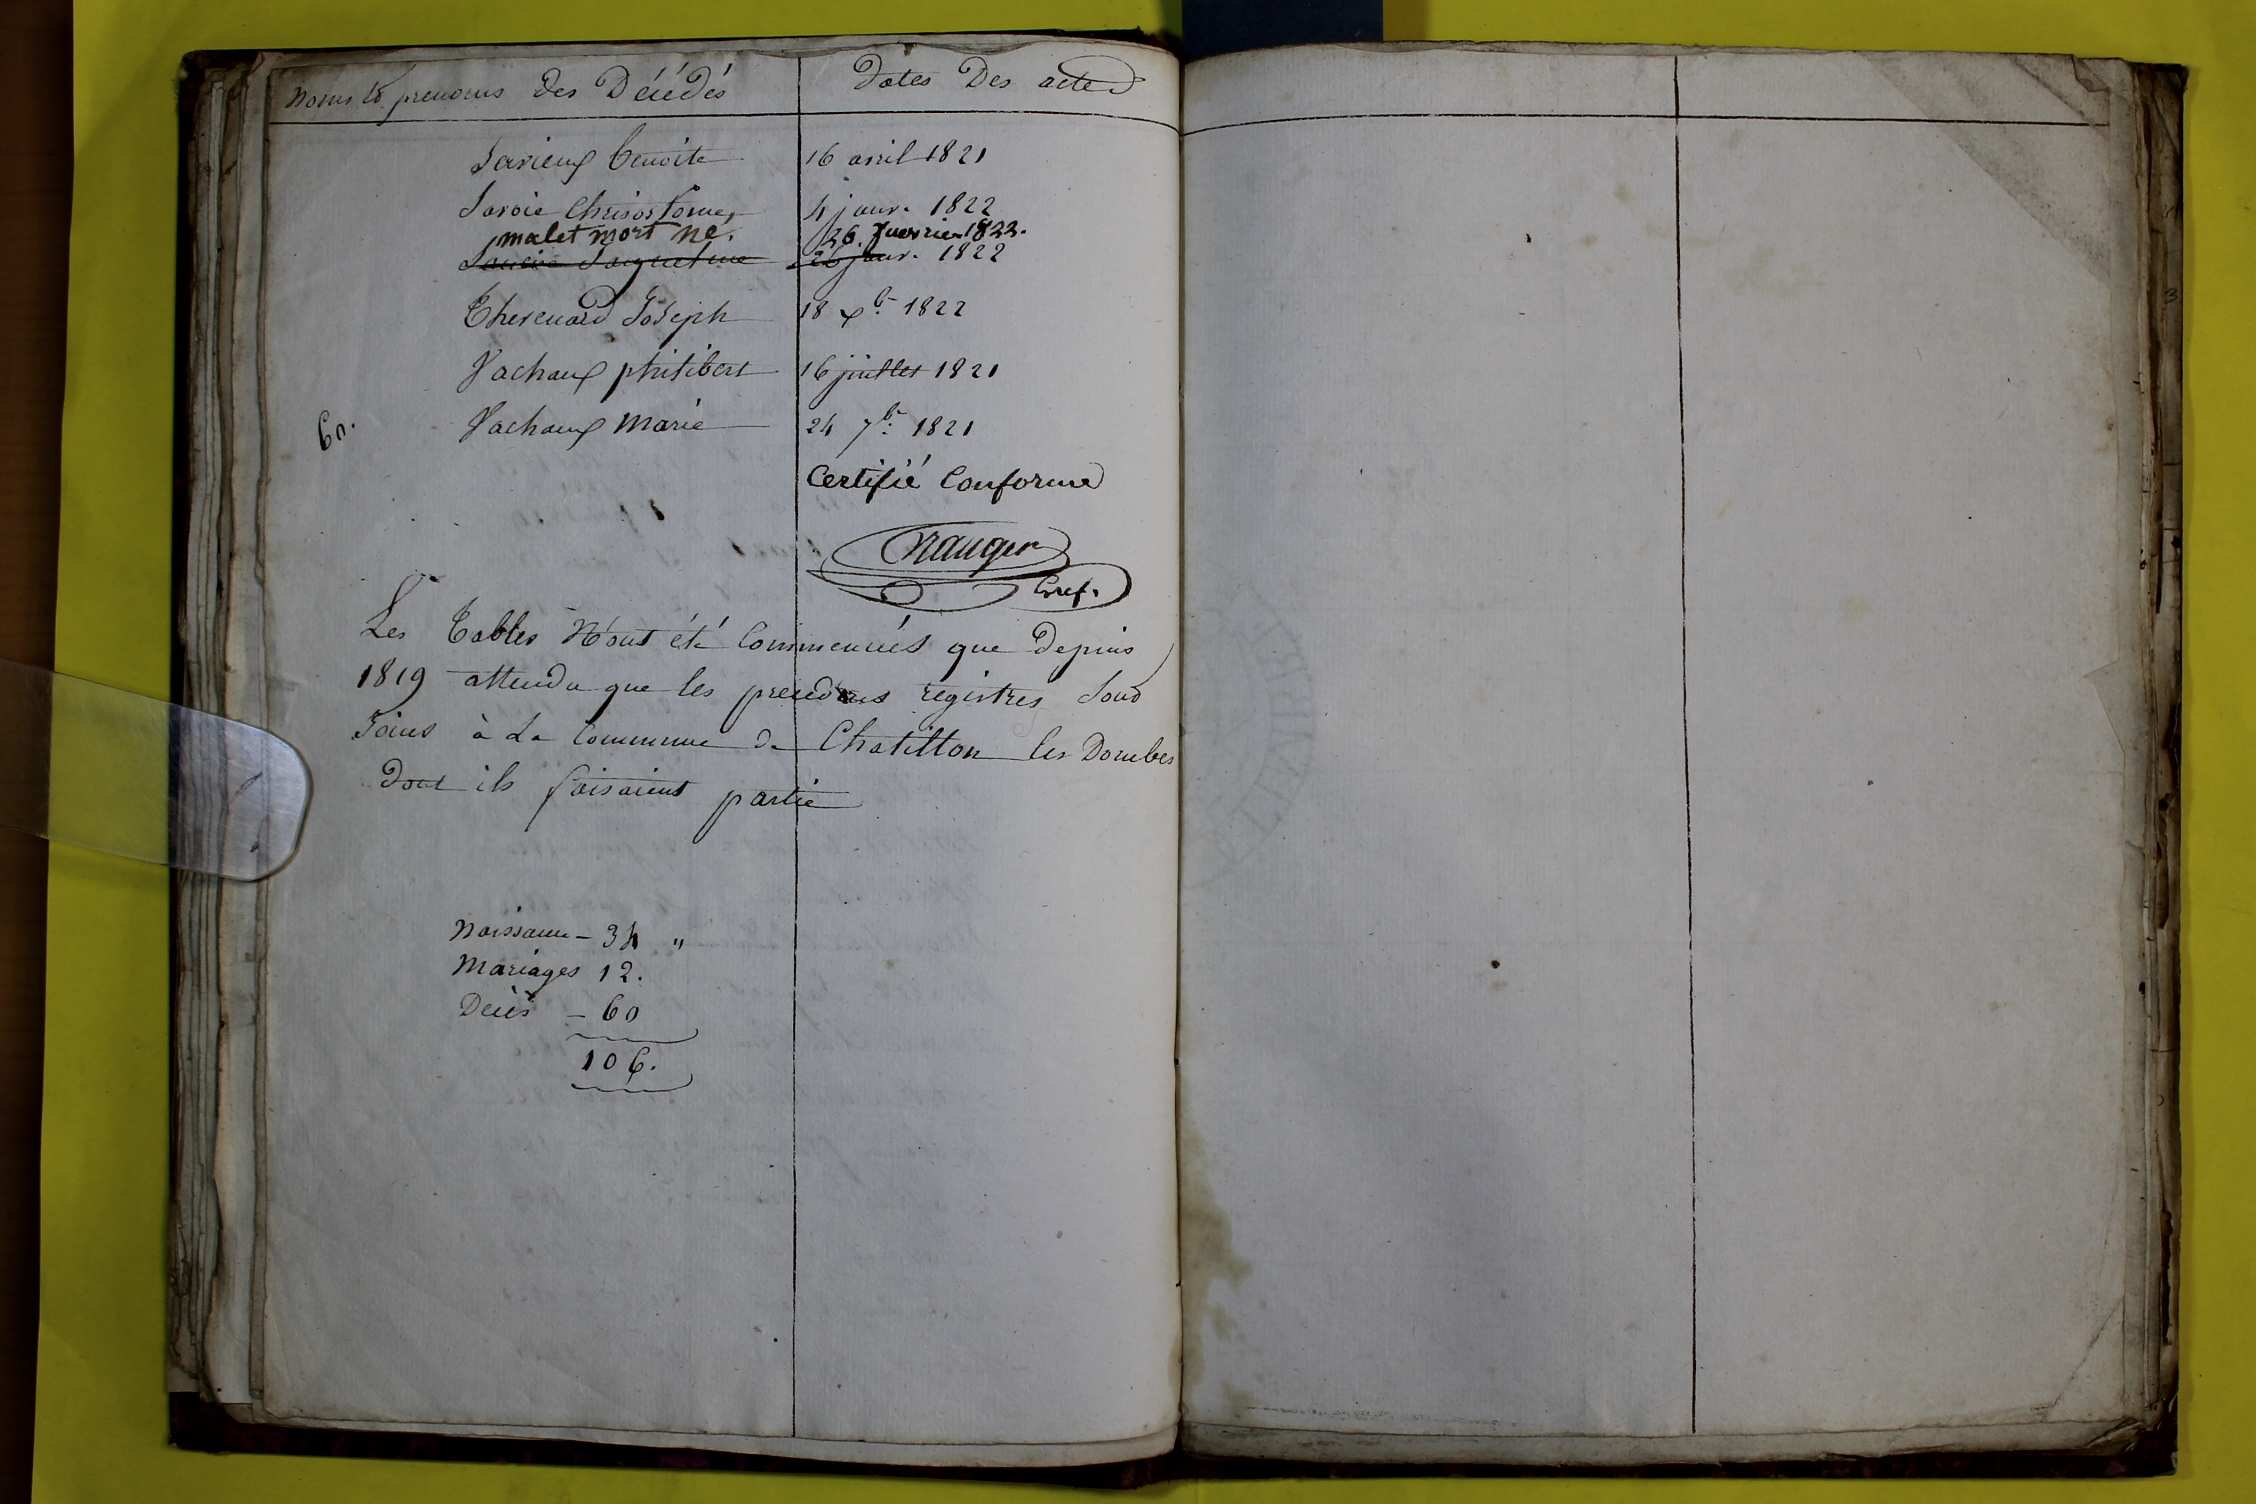 Noms & prenoms des Décédés Dates Des actes
Savieux benoite 16 avril 1821
Savoie Chrisostome 4 janv. 1822
malet mort né. 26. Juenvier 1822.
26 janv. 1822
Thevenard Joseph 18 Xb. 1822
Vachoux philibert 16 juillet 1821
60. Vachoux Marie 24 7b. 1821
Certifié Conforme
Nauger
Gref.
Les Tables N'ont été Commencées que Depuis
1819 attendu que les precedens registres Sont
Joins à La Commune de Chatillon les Dombes
Dont ils faisoient partie
Noissance - 34 "
Mariages 12.
Décès - 60
106.